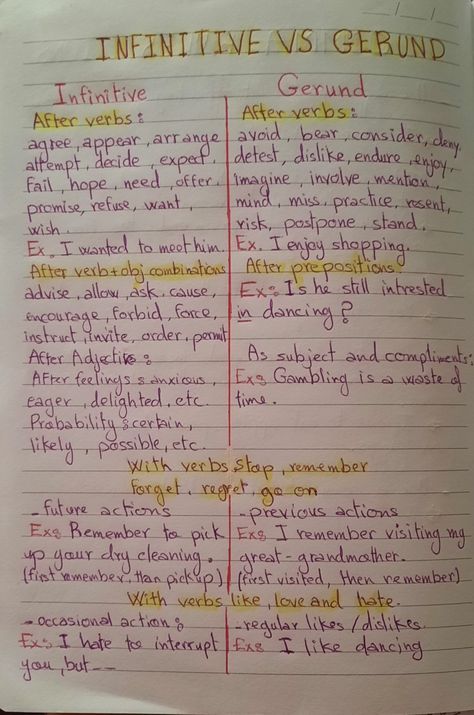 INFINITIVE VS GERUND
Infinitive
After verbs:
agree, appear, arrange
attempt, decide, expect,
fail, hope, need, offer,
promise, refuse, want,
wish.
Ex. I wanted to meet him.
After verb+obj combinations
advise, allow, ask, cause,
encourage, forbid, force,
instruct, invite, order, permit
After Adjective:
After feelings: anxious,
eager, delighted, etc.
Probability: certain,
likely, possible, etc.
Gerund
After verbs:
avoid, bear, consider, deny,
detest, dislike, endure, enjoy,
imagine, involve, mention,
mind, miss, practice, resent,
risk, postpone, stand.
Ex. I enjoy shopping.
After prepositions:
Ex: Is he still intrested
in dancing?
As subject and compliments:
Ex: Gambling is a waste of
time.
With verbs stop, remember
forget, regret, go on
- future actions
Ex: Remember to pick
up your dry cleaning.
(first remember, than pick up)
- previous actions
Ex: I remember visiting my
great-grandmother.
(first visited, then remember)
With verbs like, love and hate.
- occasional action:
Ex: I hate to interrupt
you, but --
- regular likes / dislikes.
Ex: I like dancing